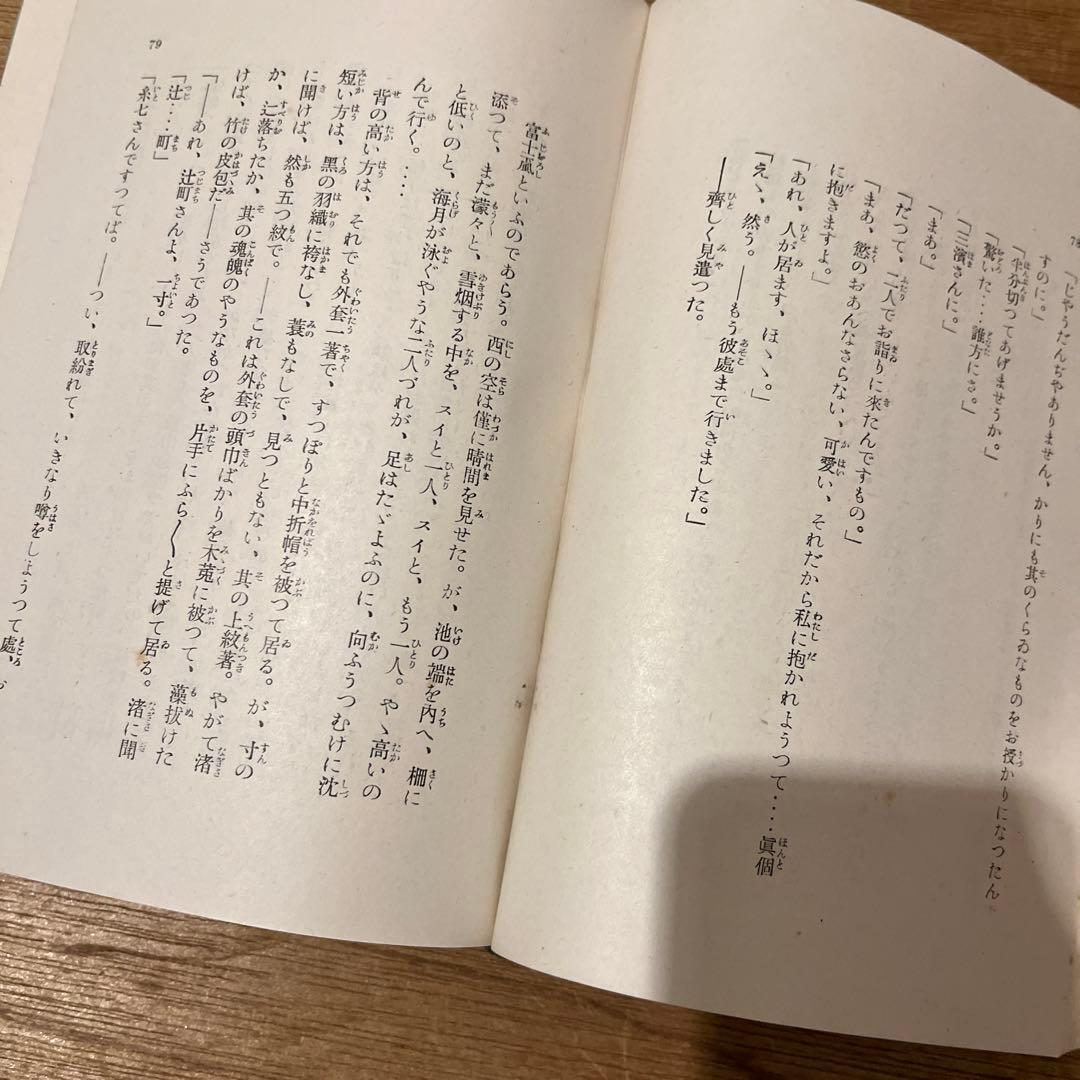 78
「じやうだんぢやありません、かりにも其のくらゐなものをお授かりになつたん
すのに。」
「半分切つてあげませうか。」
「驚いた‥‥誰方にさ。」
「三濱さんに。」
「まあ。」
「だつて、二人でお詣りに來たんですもの。」
「まあ、慾のおあんなさらない、可愛い、それだから私に抱かれようつて‥‥眞個
に抱きますよ。」
「あれ、人が居ます、ほゝ。」
「えゝ、然う。――もう彼處まで行きました。」
――齊しく見遣つた。
富士颪といふのであらう。西の空は僅に晴間を見せた。が、池の端を内へ、柵に
添つて、まだ濛々と、雪烟する中を、スイと一人、スイと、もう一人。やゝ高いの
と低いのと、海月が泳ぐやうな二人づれが、足はたゞよふのに、向ふうつむけに沈
んで行く。‥‥
背の高い方は、それでも外套一著で、すつぽりと中折帽を被つて居る。が、寸の
短い方は、黒の羽織に袴なし、蓑もなしで、見つともない、其の上紋著。やがて渚
に聞けば、然も五つ紋で。――これは外套の頭巾ばかりを木菟に被つて、藻拔けた
か、辷落ちたか、其の魂魄のやうなものを、片手にふら〳〵と提げて居る。渚に聞
けば、竹の皮包だ――さうであつた。
「――あれ、辻町さんよ、一寸。」
「辻‥‥町」
「糸七さんですつてば。――つい、取紛れて、いきなり噂をしようつて處、
79